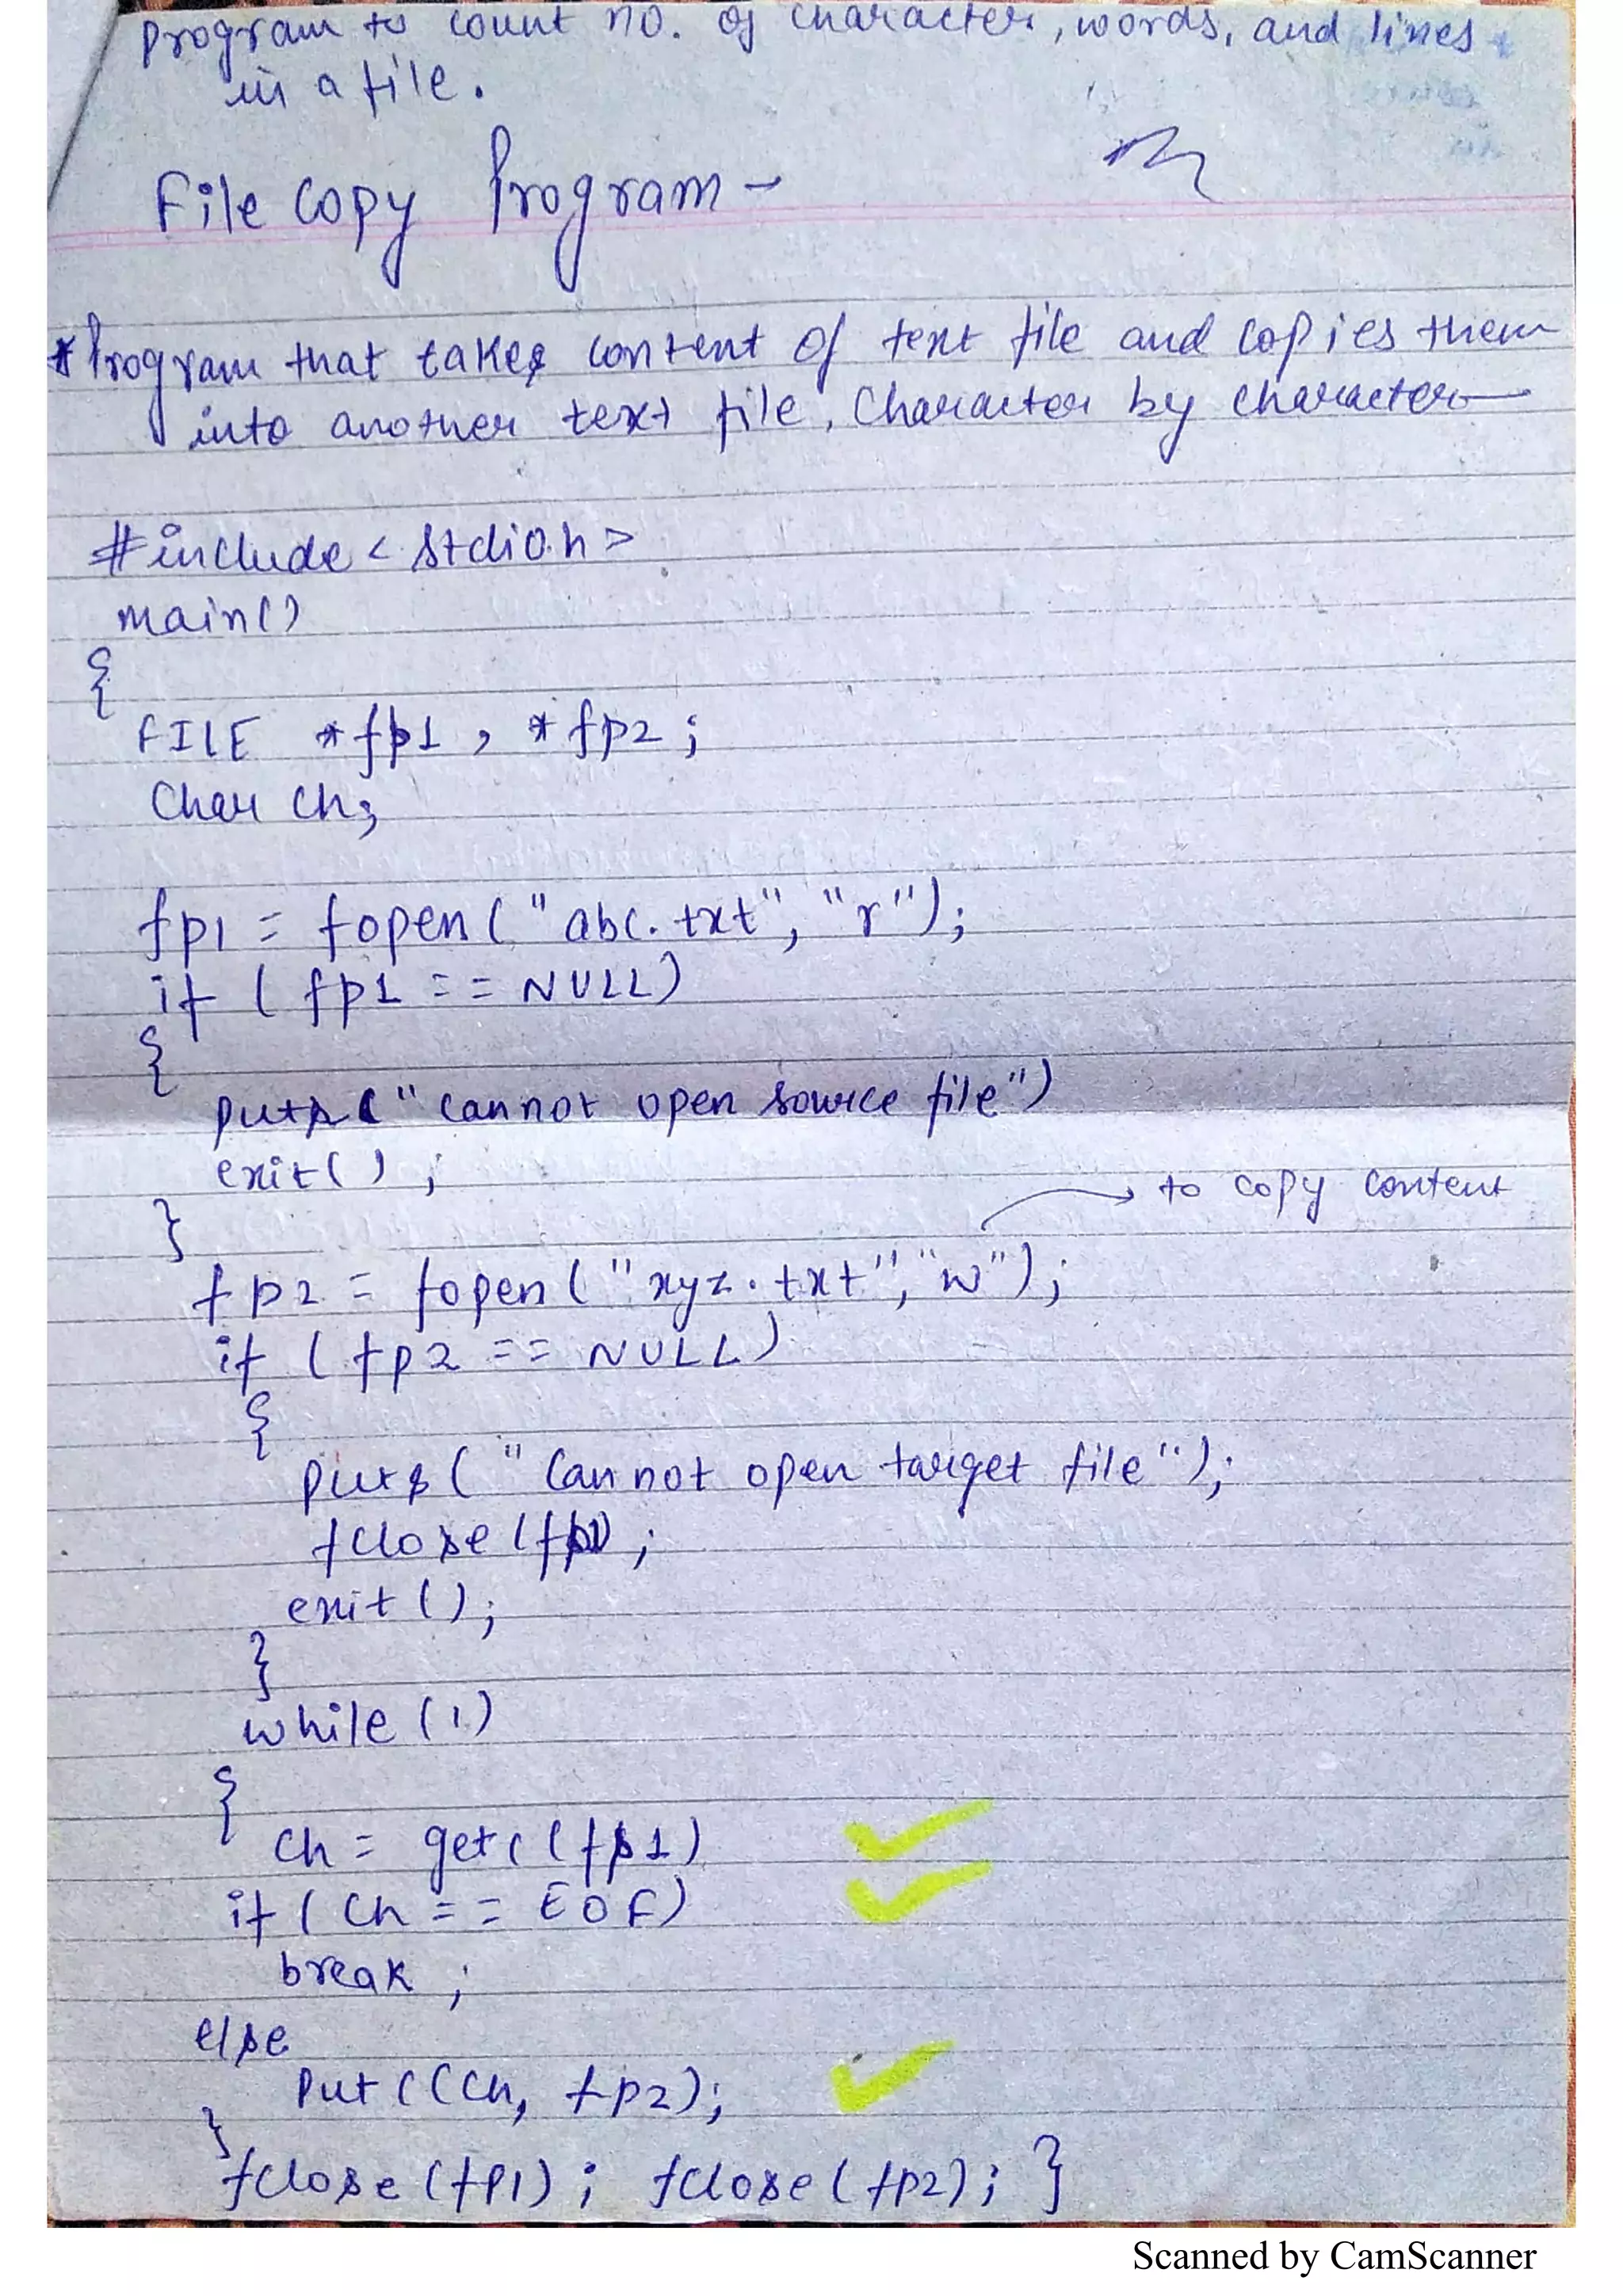 program to count no. of character, words, and lines
in a file.
File Copy Program -
* Program that takes content of text file and copies them
into another text file, Character by character
#include < stdio.h >
main()
{
FILE *fp1 , *fp2 ;
Char ch;
fp1 = fopen ( "abc.txt", "r" );
if ( fp1 == NULL)
{
puts ( " cannot open source file")
exit( ) ;
}
to copy content
fp2 = fopen ( "xyz.txt", "w" );
if ( fp2 == NULL)
{
puts ( " Cannot open target file" );
fclose (fp1) ;
exit ( ) ;
}
while (1)
{
Ch = getc ( fp1 )
if ( Ch == EOF)
break ;
else
Putc ( Ch, fp2 );
}
fclose (fp1) ; fclose ( fp2 ) ; }
Scanned by CamScanner